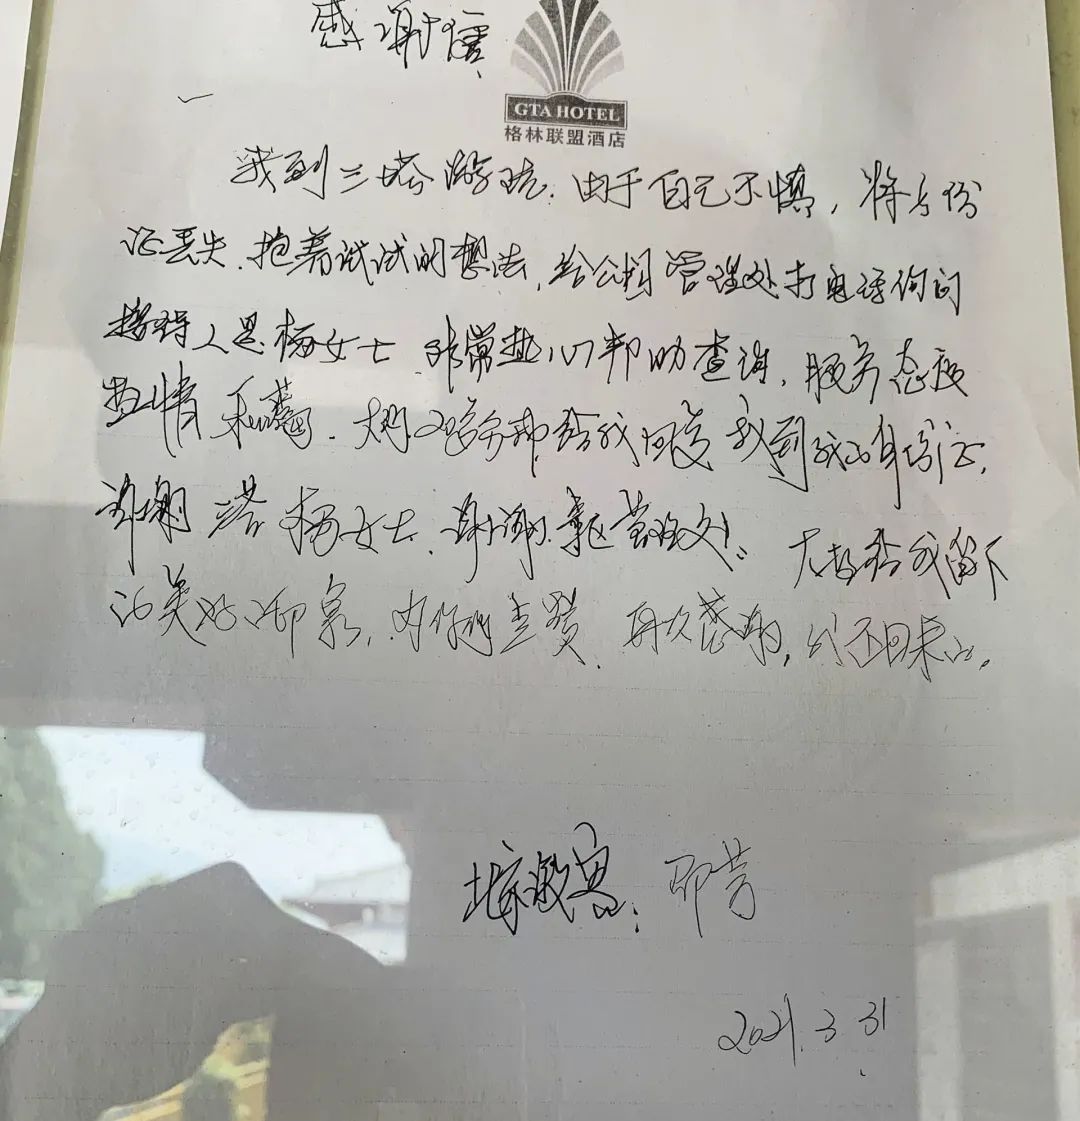 感谢信
GTA HOTEL
格林联盟酒店
我到三塔游玩.由于自己不慎,将身份
证丢失.抱着试试的想法,给公园管理处打电话询问
接待人是杨女士 非常热心帮助查询,服务态度
热情和蔼. 给我回复 我到我的身份证.
谢谢 塔杨女士.谢谢景区 大理给我留下
的美好印象,为你们点赞.再次感谢,我还回来的.
北京
2021.3.31